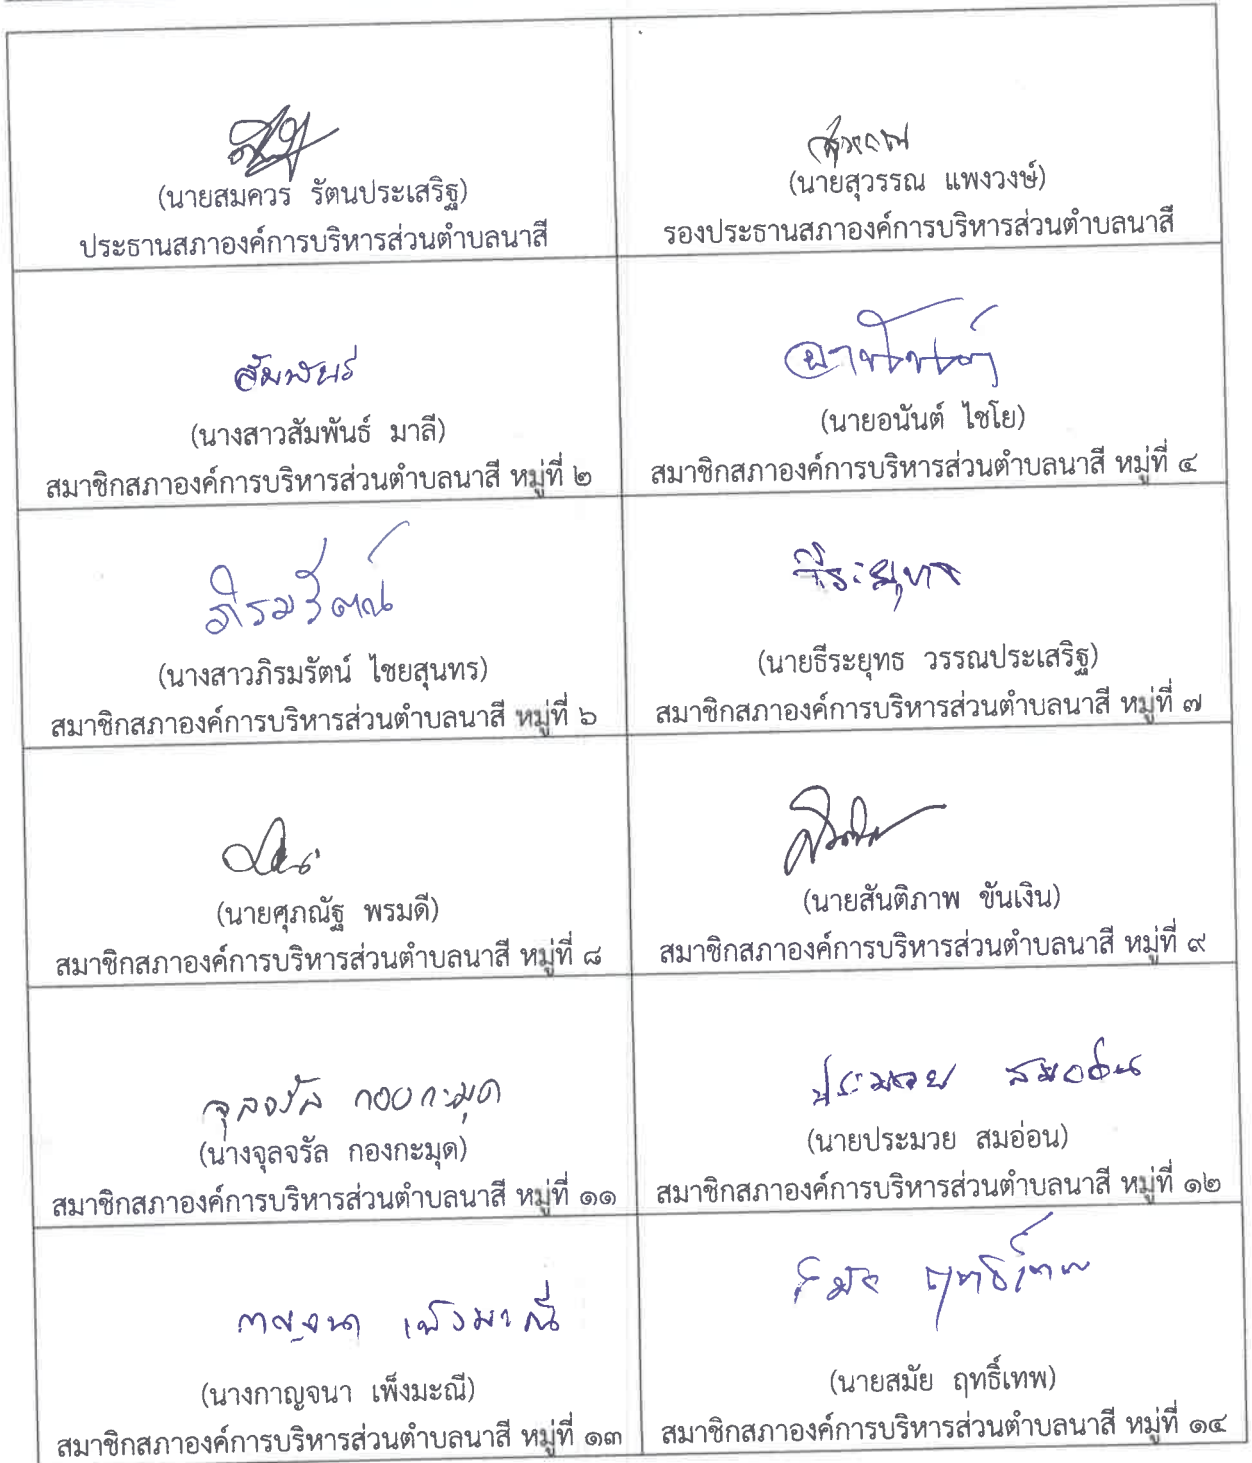 (นายสมควร รัตนประเสริฐ)
ประธานสภาองค์การบริหารส่วนตำบลนาสี
สุวรรณ
(นายสุวรรณ แพงวงษ์)
รองประธานสภาองค์การบริหารส่วนตำบลนาสี
สัมพันธ์
(นางสาวสัมพันธ์ มาลี)
สมาชิกสภาองค์การบริหารส่วนตำบลนาสี หมู่ที่ ๒
(นายอนันต์ ไชโย)
สมาชิกสภาองค์การบริหารส่วนตำบลนาสี หมู่ที่ ๔
ภิรมรัตน์
(นางสาวภิรมรัตน์ ไชยสุนทร)
สมาชิกสภาองค์การบริหารส่วนตำบลนาสี หมู่ที่ ๖
ธีระยุทธ
(นายธีระยุทธ วรรณประเสริฐ)
สมาชิกสภาองค์การบริหารส่วนตำบลนาสี หมู่ที่ ๗
(นายศุภณัฐ พรมดี)
สมาชิกสภาองค์การบริหารส่วนตำบลนาสี หมู่ที่ ๘
(นายสันติภาพ ขันเงิน)
สมาชิกสภาองค์การบริหารส่วนตำบลนาสี หมู่ที่ ๙
จุลจรัล กองกะมุด
(นางจุลจรัล กองกะมุด)
สมาชิกสภาองค์การบริหารส่วนตำบลนาสี หมู่ที่ ๑๑
ประมวย สมอ่อน
(นายประมวย สมอ่อน)
สมาชิกสภาองค์การบริหารส่วนตำบลนาสี หมู่ที่ ๑๒
กาญจนา เพ็งมะณี
(นางกาญจนา เพ็งมะณี)
สมาชิกสภาองค์การบริหารส่วนตำบลนาสี หมู่ที่ ๑๓
สมัย ฤทธิ์เทพ
(นายสมัย ฤทธิ์เทพ)
สมาชิกสภาองค์การบริหารส่วนตำบลนาสี หมู่ที่ ๑๔